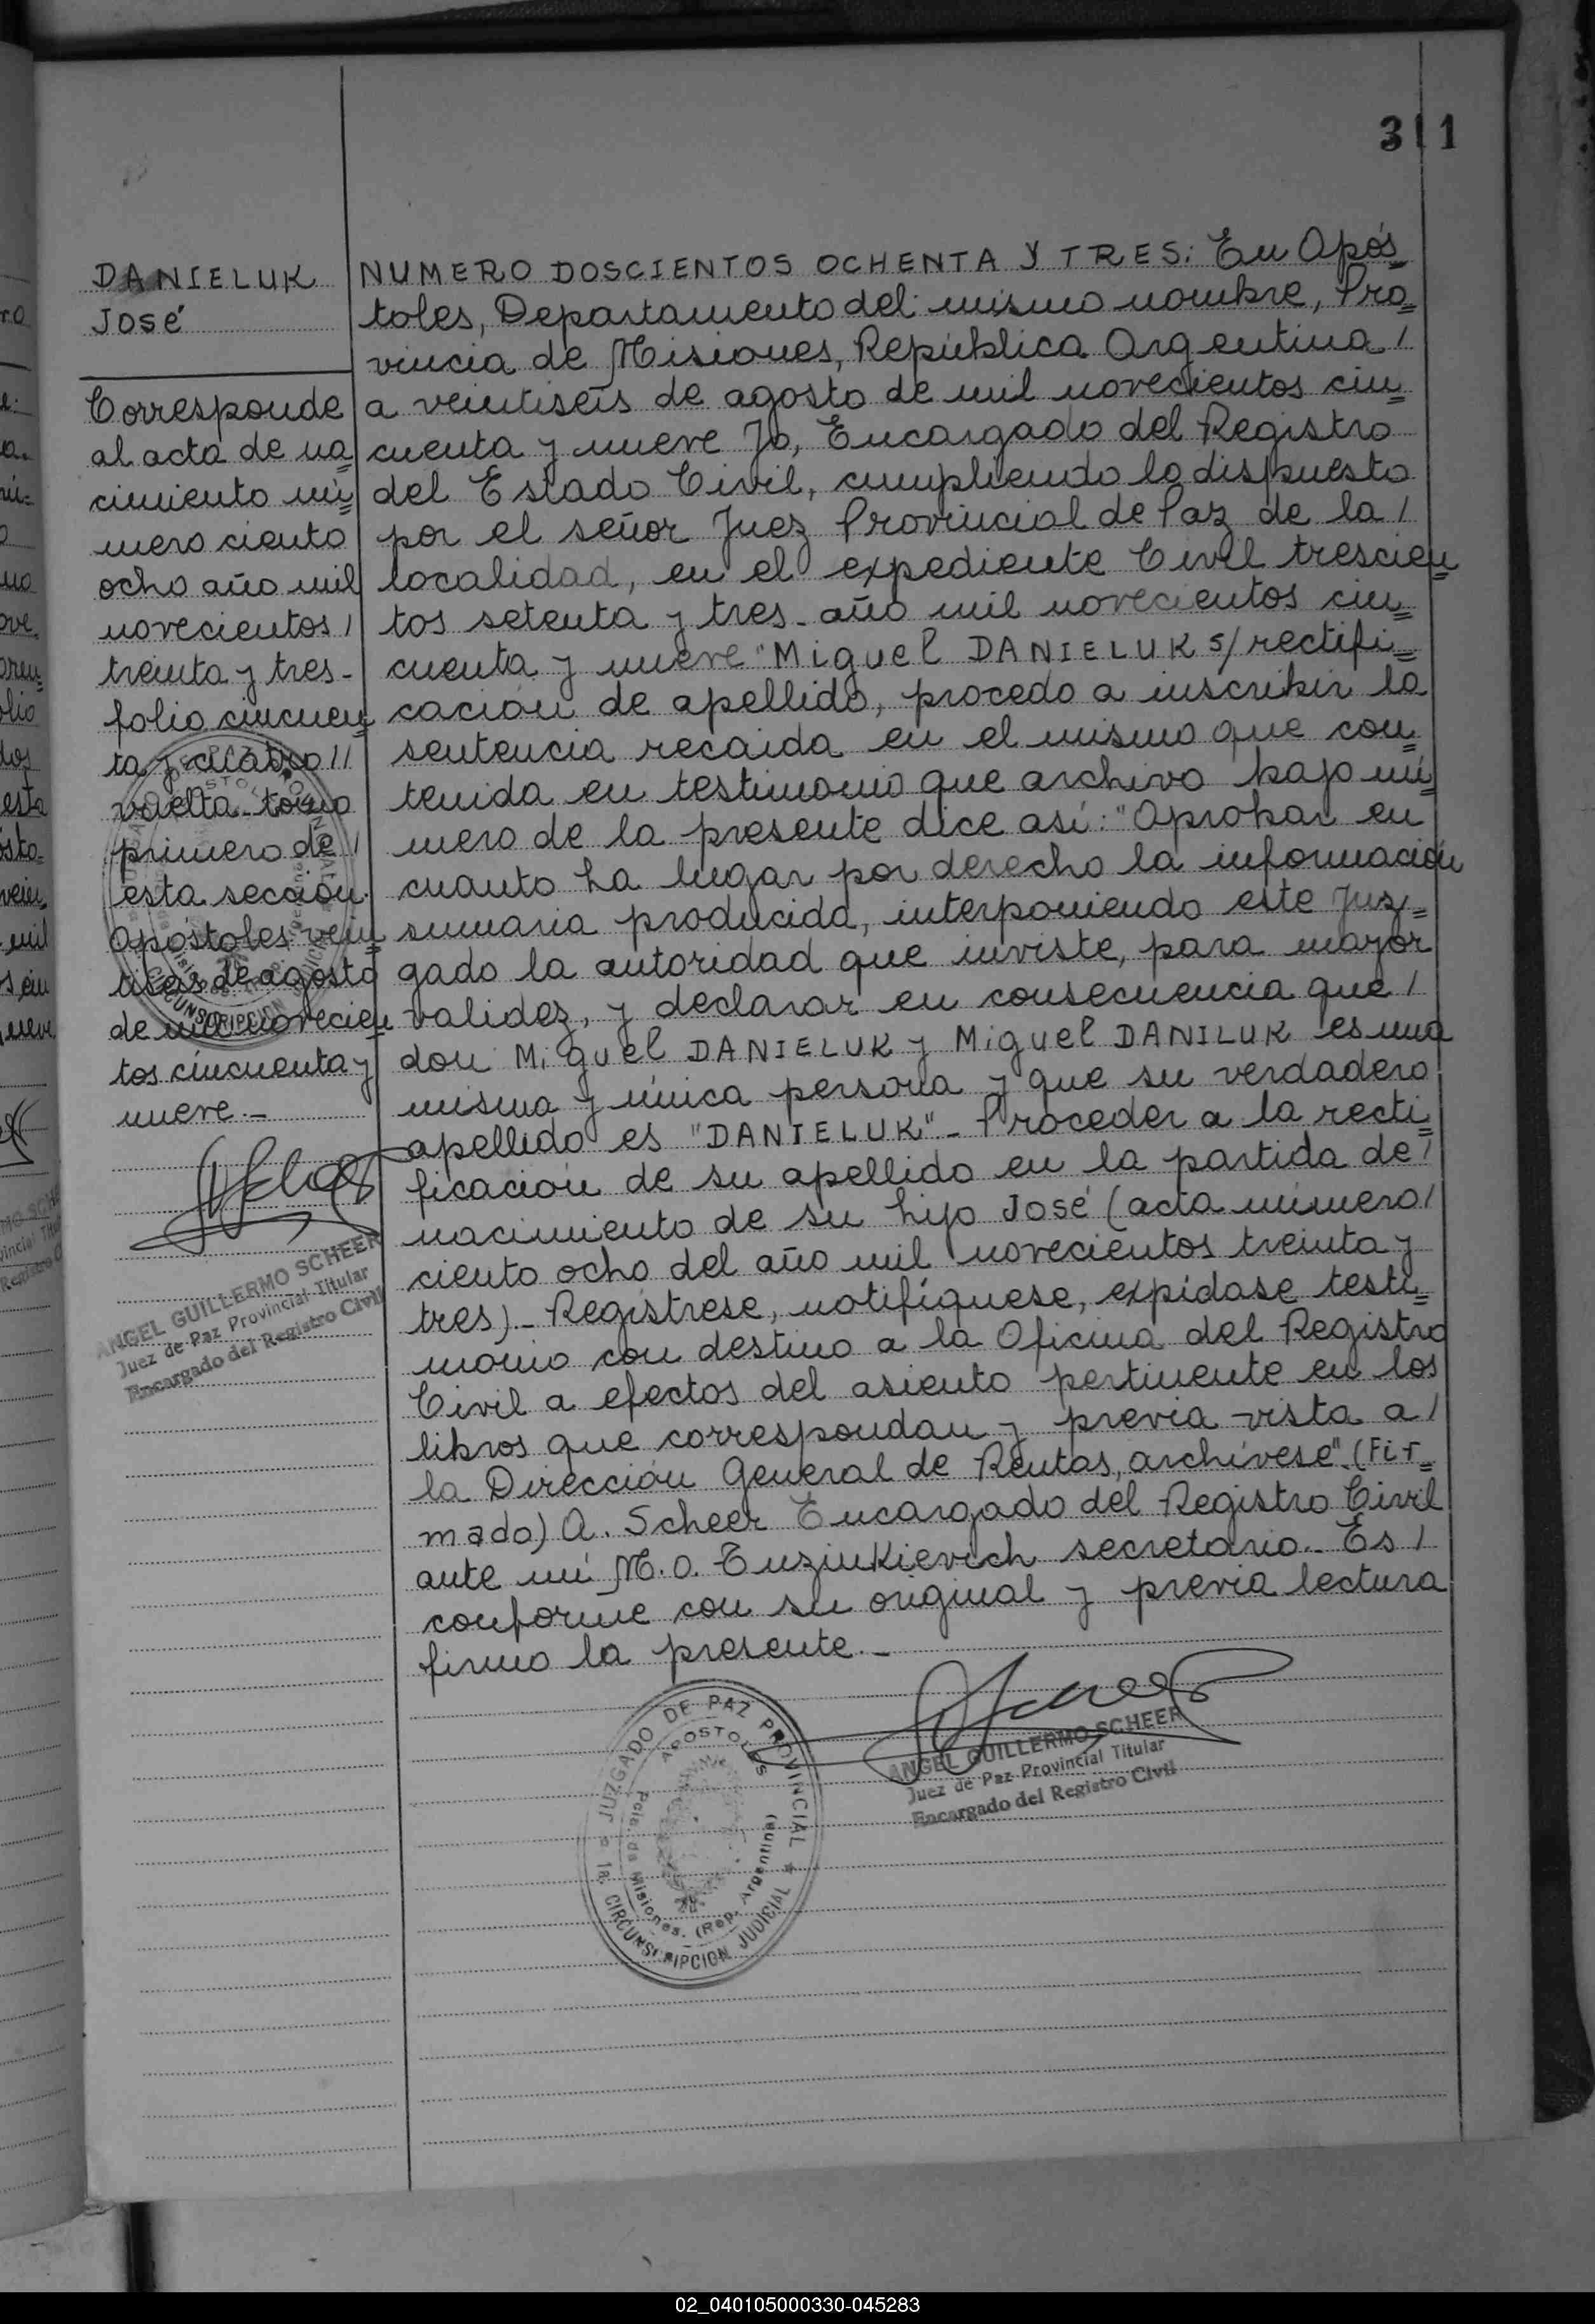 311
DANIELUK
José
Corresponde
al acta de na=
cimiento nú=
mero ciento
ocho año mil
novecientos/
treinta y tres-
folio cincuen=
ta y cuatro//
vuelta-tomo
primero de/
esta sección.
Apóstoles vein=
tiseis de agosto
de mil novecien=
tos cincuenta y
nueve.-
ANGEL GUILLERMO SCHEER
Juez de Paz Provincial Titular
Encargado del Registro Civil
NUMERO DOSCIENTOS OCHENTA Y TRES: En Após=
toles, Departamento del mismo nombre, Pro=
vincia de Misiones, República Argentina/
a veintiseis de agosto de mil novecientos cin=
cuenta y nueve Yo, Encargado del Registro
del Estado Civil, cumpliendo lo dispuesto
por el señor Juez Provincial de Paz de la/
localidad, en el expediente Civil trescien=
tos setenta y tres-año mil novecientos cin=
cuenta y nueve "Miguel DANIELUK s/rectifi=
cación de apellido, procedo a inscribir la
sentencia recaida en el mismo que con=
tenida en testimonio que archivo bajo nú=
mero de la presente dice así: "Aprobar en
cuanto ha lugar por derecho la información
sumaria producida, interponiendo este Juz=
gado la autoridad que inviste, para mayor
validez, y declarar en consecuencia que/
don Miguel DANIELUK y Miguel DANILUK es una
misma y única persona y que su verdadero
apellido es "DANIELUK"- Proceder a la recti=
ficación de su apellido en la partida de/
nacimiento de su hijo José (acta número/
ciento ocho del año mil novecientos treinta y
tres).- Regístrese, notifíquese, expídase testi=
monio con destino a la Oficina del Registro
Civil a efectos del asiento pertinente en los
libros que correspondan y previa vista a/
la Dirección General de Rentas, archívese".(Fir=
mado) A. Scheer Encargado del Registro Civil
ante mí M.O. Tuzinkievich secretario.- Es/
conforme con su original y previa lectura
firmo la presente.-
JUZGADO DE PAZ PROVINCIAL
APOSTOLES
Pcia. de Misiones. (Rep. Argentina)
1a. CIRCUNSCRIPCION JUDICIAL
ANGEL GUILLERMO SCHEER
Juez de Paz Provincial Titular
Encargado del Registro Civil
02_040105000330-045283